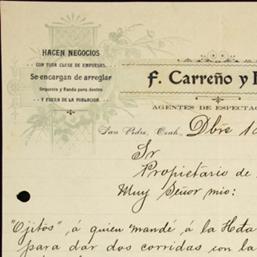 HACEN NEGOCIOS
CON TODA CLASE DE EMPRESAS.
Se encargan de arreglar
Orquesta y Banda para dentro
Y FUERA DE LA POBLACION.
F. Carreño y
AGENTES DE ESPECTAC
San Pedro, Coah., Dbre 1
Sr
Propietario de
Muy Señor mio:
"Ojitos" á quien mandé á la Hda
para dar dos corridas con la